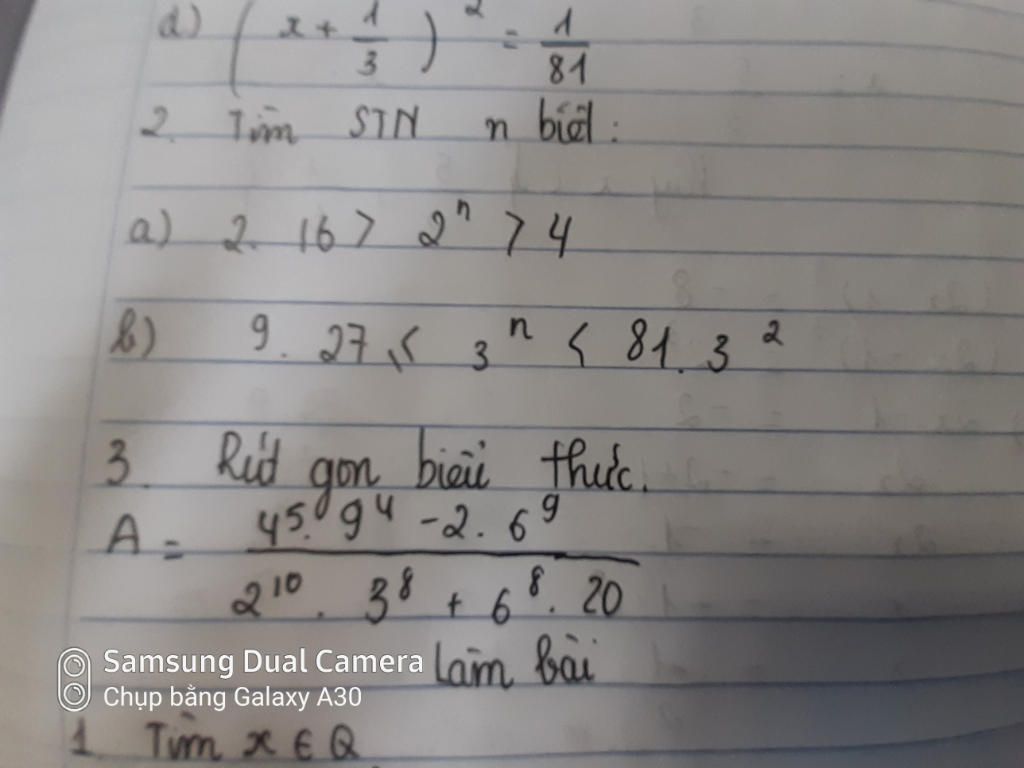 d) ( x + 1/3 )² = 1/81
2. Tìm STN n biết :
a) 2. 16 > 2ⁿ > 4
b) 9. 27 ≤ 3ⁿ < 81. 3²
3. Rút gọn biểu thức.
A = (4⁵. 9⁴ - 2. 6⁹) / (2¹⁰. 3⁸ + 6⁸. 20)
Làm bài
Samsung Dual Camera
Chụp bằng Galaxy A30
1 Tìm x ∈ Q